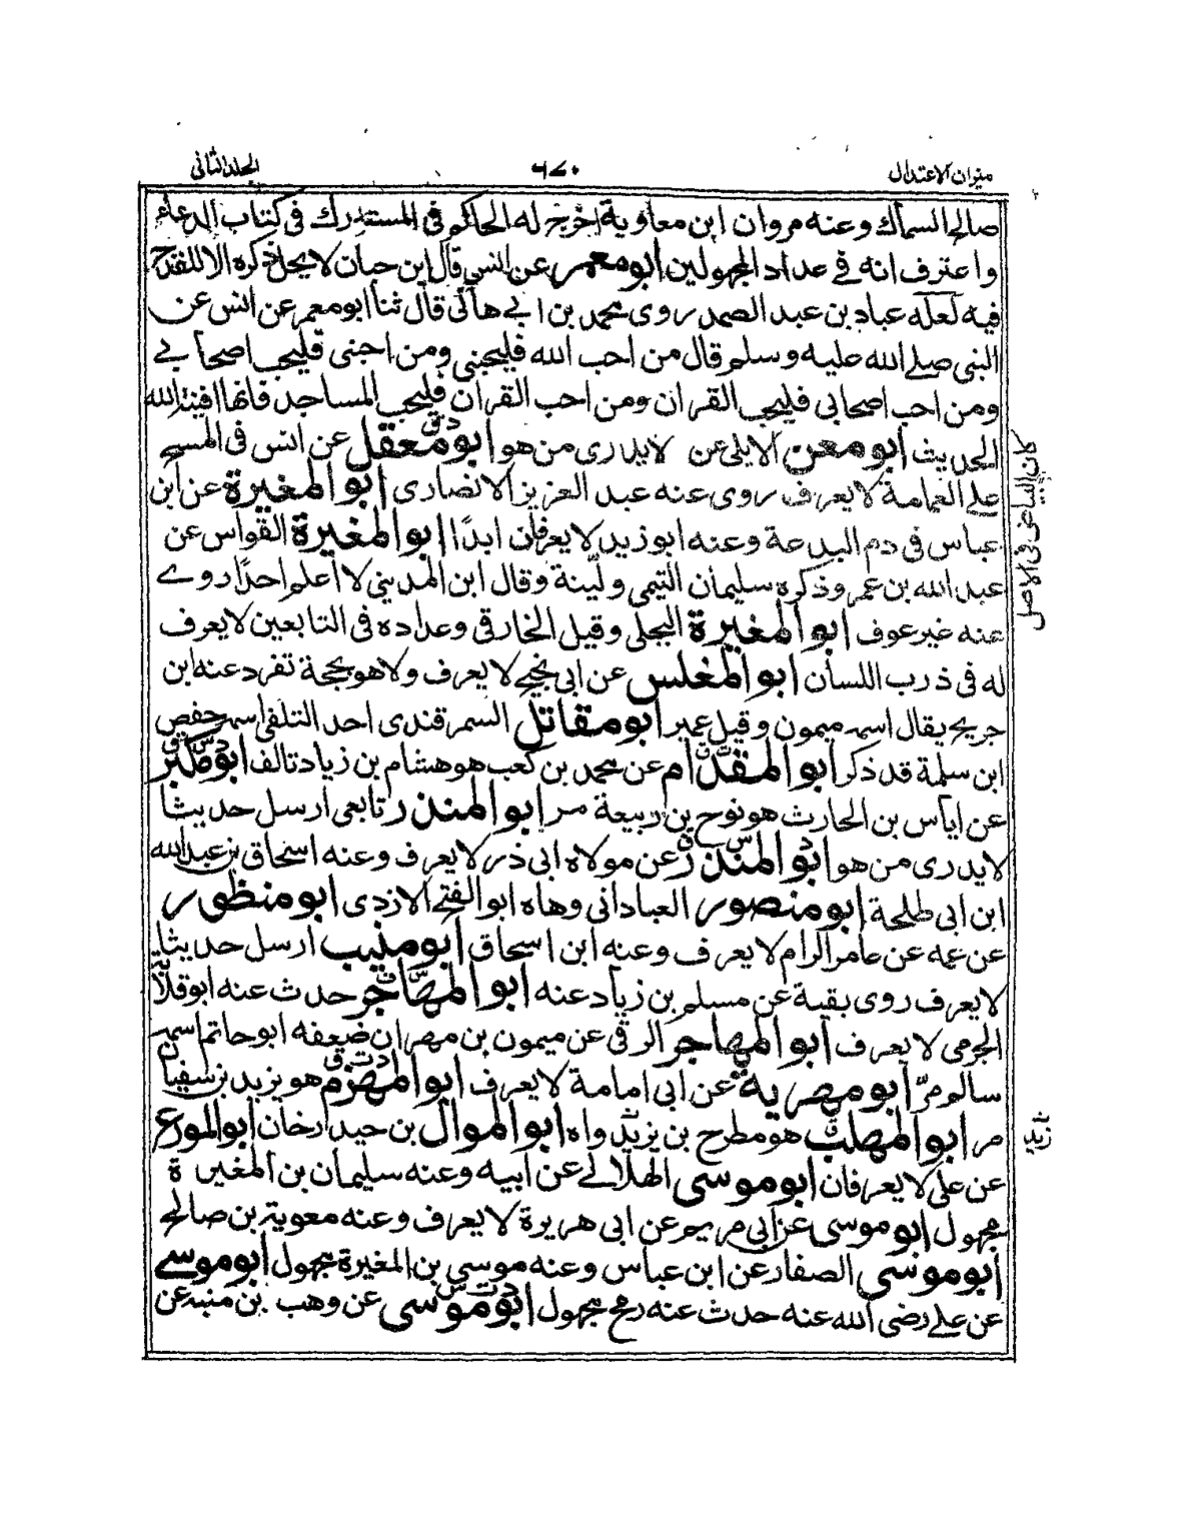 ميزان الاعتدال
٦٧٠
الجلد الثاني
صالح السماك وعنه مروان ابن معاوية اخرج له الحاكم في المستدرك في كتاب الدعاء
واعترف انه في عداد المجهولين ابو معمر عن انس قال ابن حبان لا يحل ذكره الا للقدح
فيه لعله عباد بن عبد الصمد روى محمد بن ابي هاني قال ثنا ابو معمر عن انس عن
النبي صلى الله عليه وسلم قال من احب الله فليحبني ومن احبني فليحب اصحابي
ومن احب اصحابي فليحب القران ومن احب القران فليحب المساجد فانها افنية الله
الحديث ابو معن الايلي عن لا يدرى من هو ابو معقل عن انس في المسح
على العمامة لا يعرف روى عنه عبد العزيز الانصارى ابو المغيرة عن ابن
عباس في دم البدعة وعنه ابو زيد لا يعرفان ابدًا ابو المغيرة القواس عن
عبد الله بن عمر وذكره سليمان التيمي ولينة وقال ابن المديني لا اعلم احدًا روى
عنه غير عوف ابو المغيرة البجلي وقيل الخارقي وعداده في التابعين لا يعرف
له في ذرب اللسان ابو المغلس عن ابي نجيح لا يعرف ولا هو بحجة تفرد عنه ابن
جريج يقال اسمه ميمون وقيل عمير ابو مقاتل السمرقندى احد التلفى اسمه حفص
ابن سلمة قد ذكر ابو المقدام عن محمد بن كعب هو هشام بن زياد تالف ابو مكين
عن اياس بن الحارث هو نوح بن ربيعة مر ابو المنذر تابعي ارسل حديثا
لا يدرى من هو ابو المنذر عن مولاه ابي ذر لا يعرف وعنه اسحاق بن عبد الله
ابن ابي طلحة ابو منصور العباداني وهاه ابو الفتح الازدى ابو منظور
عن عمه عن عامر الرام لا يعرف وعنه ابن اسحاق ابو منيب ارسل حديثا
لا يعرف روى بقية عن مسلم بن زياد عنه ابو المهاجر حدث عنه ابو قلابة
الجرمي لا يعرف ابو المهاجر الرقي عن ميمون بن مهران ضعفه ابو حاتم اسمه
سالم مرّ ابو مهرية عن ابي امامة لا يعرف ابو المهزم هو يزيد بن سفيان
مر ابو المهلب هو مطرح بن يزيد واه ابو الموال بن حيد ارخان ابو المورع
عن علي لا يعرفان ابو موسى الهلالى عن ابيه وعنه سليمان بن المغيرة
مجهول ابو موسى عن ابي مريم عن ابي هريرة لا يعرف وعنه معوية بن صالح
ابو موسى الصفار عن ابن عباس وعنه موسى بن المغيرة مجهول ابو موسى
عن علي رضى الله عنه حدث عنه رمح مجهول ابو موسى عن وهب بن منبه عن
كان البياض في الاصل